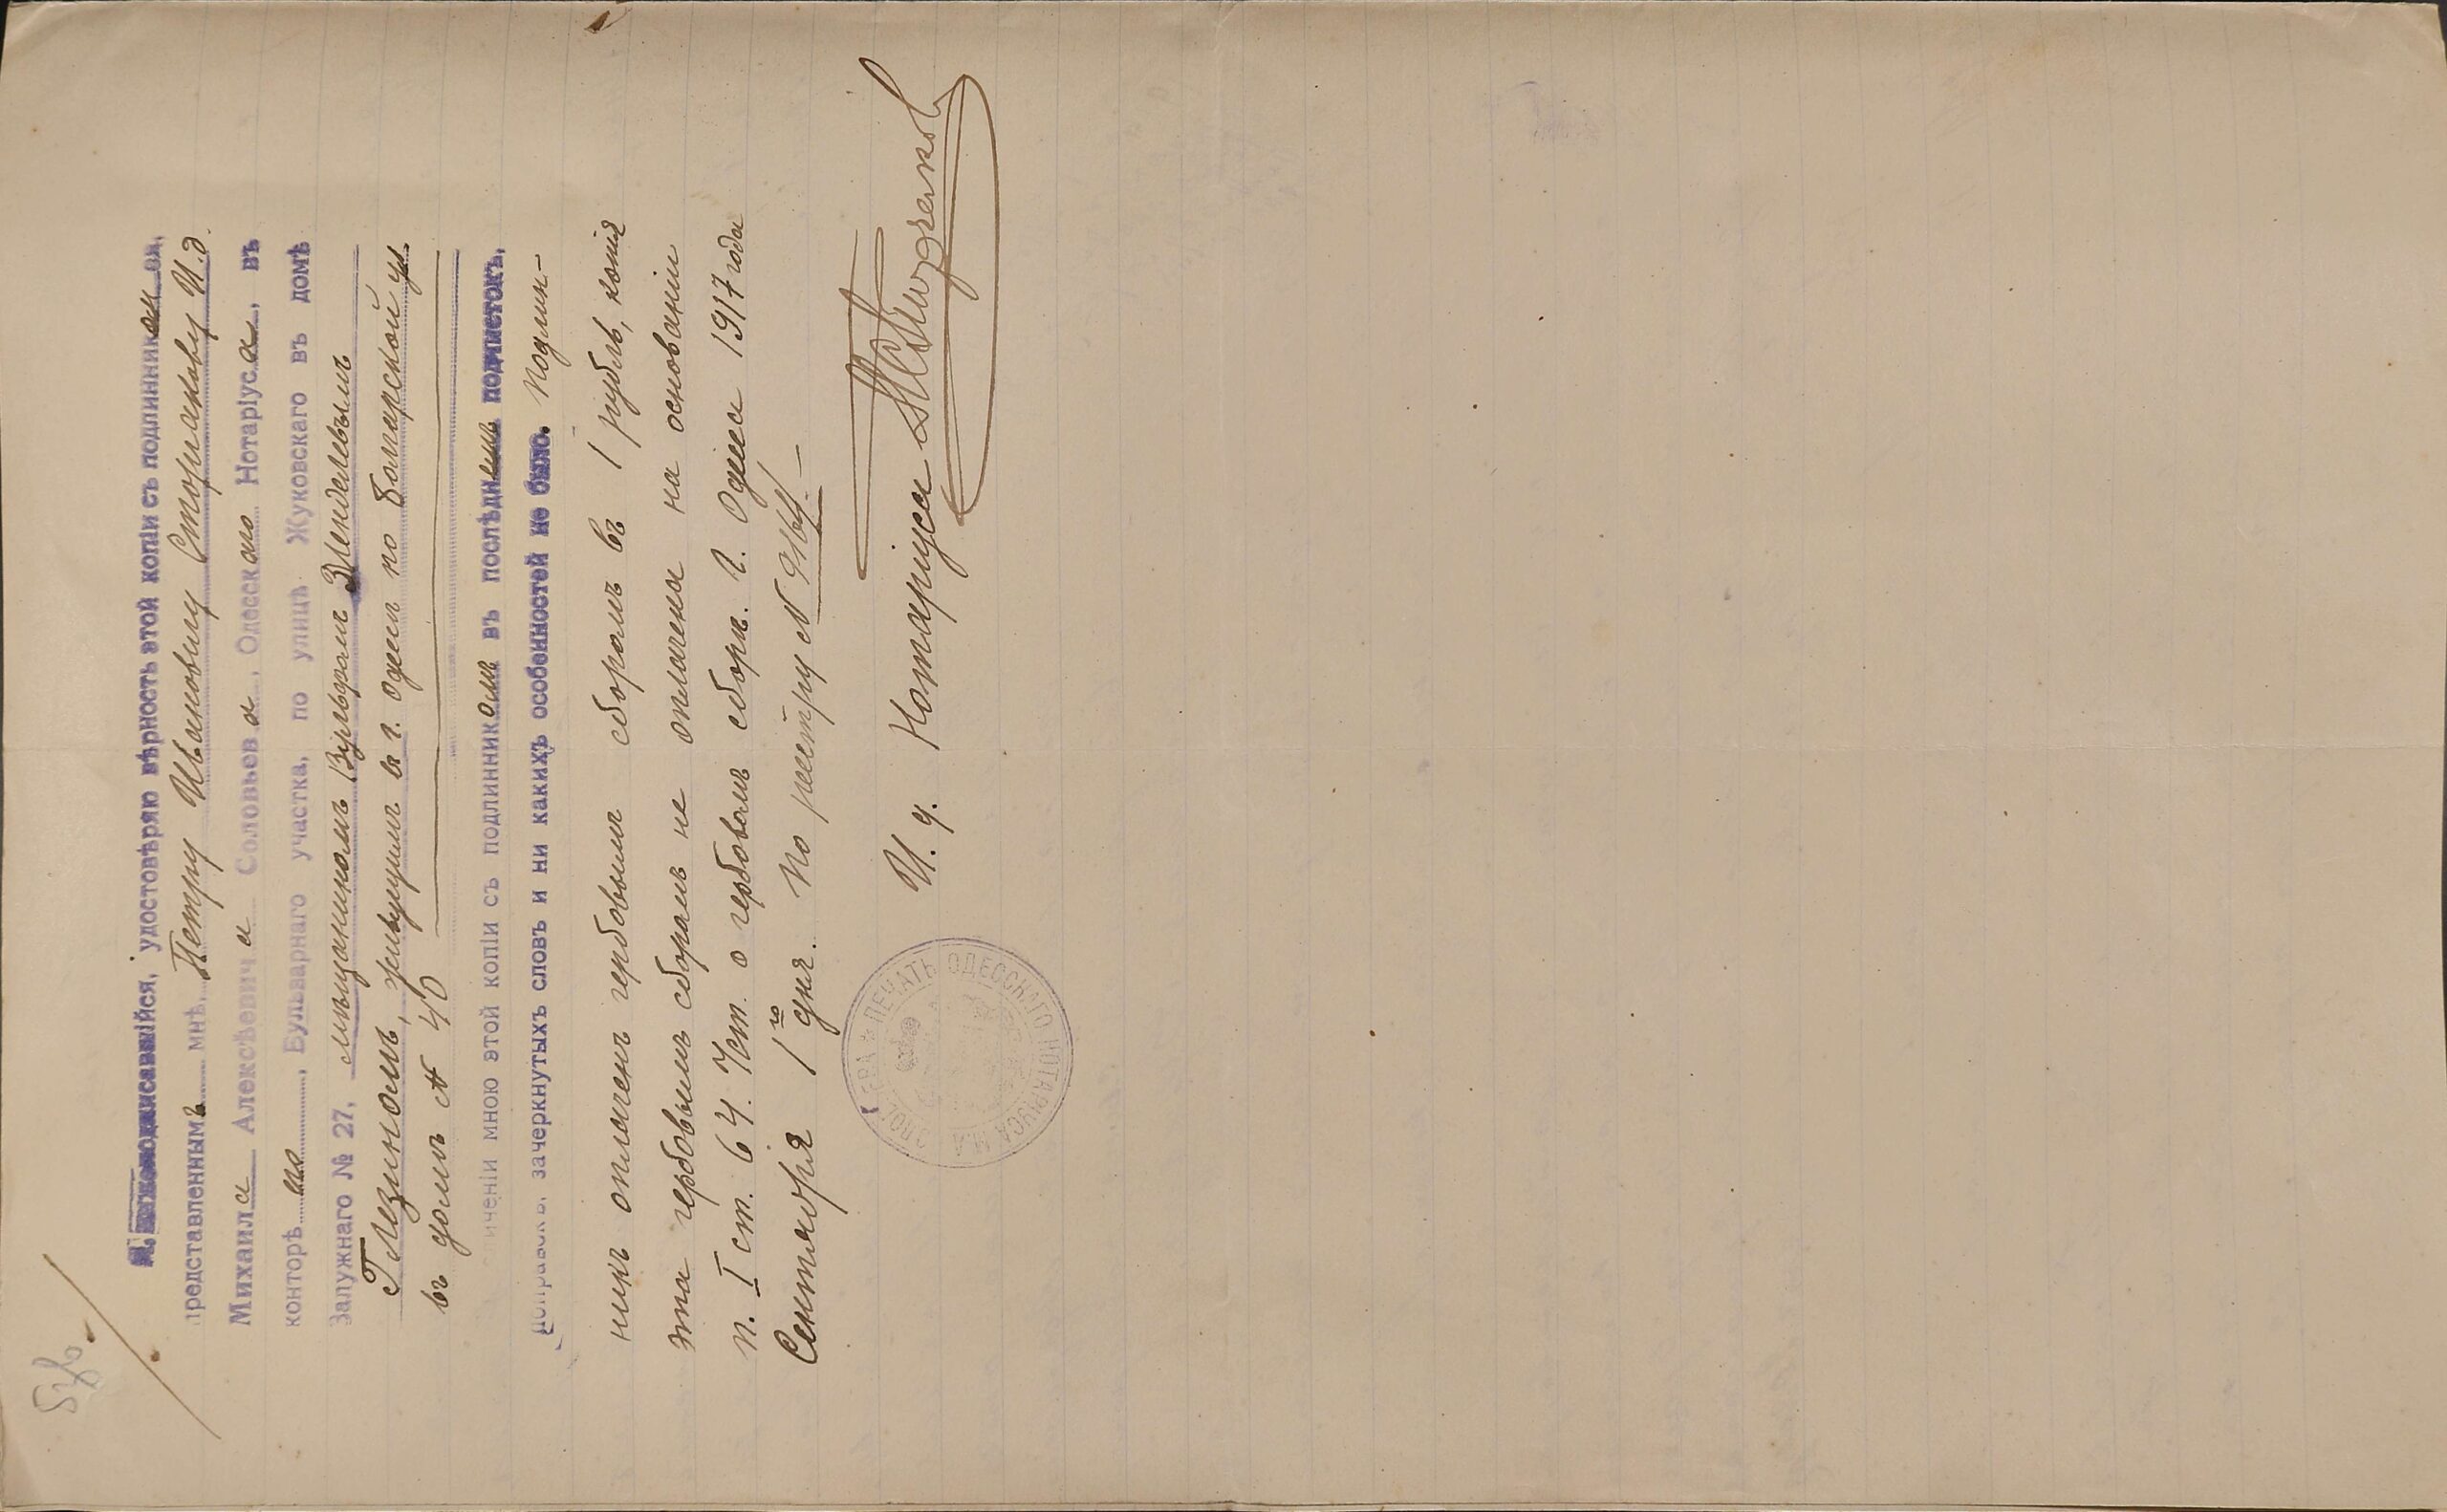 Я, нижеподписавшійся, удостовѣряю вѣрность этой копіи съ подлинникомъ,
представленнымъ мнѣ, Петру Ивановичу Сторчакову И.д.
Михаила Алексѣевича Соловьева, Одесскаго Нотаріуса, въ
конторѣ его, Бульварнаго участка, по улицѣ Жуковскаго въ домѣ
Залужнаго № 27, мѣщаниномъ Вульфомъ Менделевымъ
Глезиномъ, живущимъ въ г. Одессѣ по Болгарской ул.
въ домѣ № 40
ниченіи мною этой копіи съ подлинникомъ въ послѣднемъ подчистокъ,
поправокъ, зачеркнутыхъ словъ и ни какихъ особенностей не было. Подлин-
никъ оплаченъ гербовымъ сборомъ въ 1 рубль, копія
эта гербовымъ сборомъ не оплачена на основаніи
п. I ст. 64. Уст. о гербовомъ сборѣ. Г. Одесса 1917 года
Сентября 1го дня. По реестру №
И. д. Нотаріуса
ПЕЧАТЬ ОДЕССКАГО НОТАРІУСА М.А. СОЛОВЬЕВА